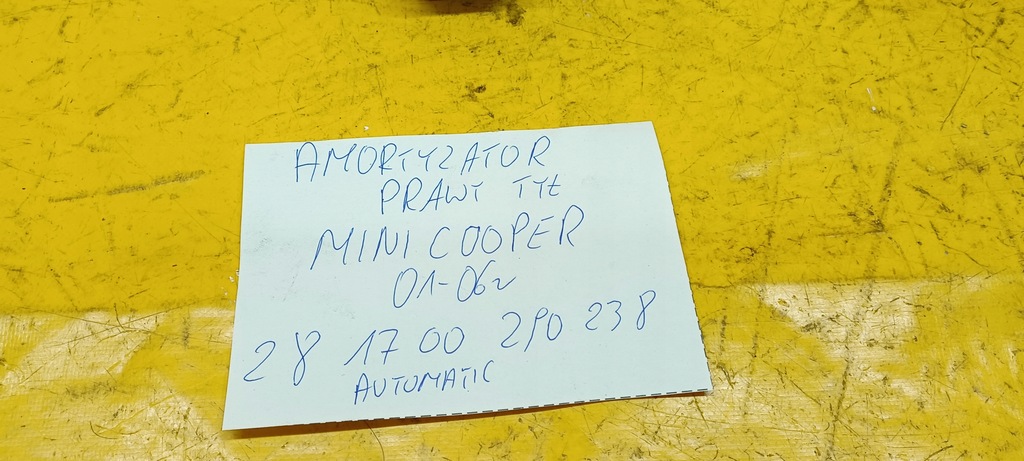 AMORTYZATOR
PRAWY TYŁ
MINI COOPER
01-06r
28 1700 290 238
AUTOMATIC